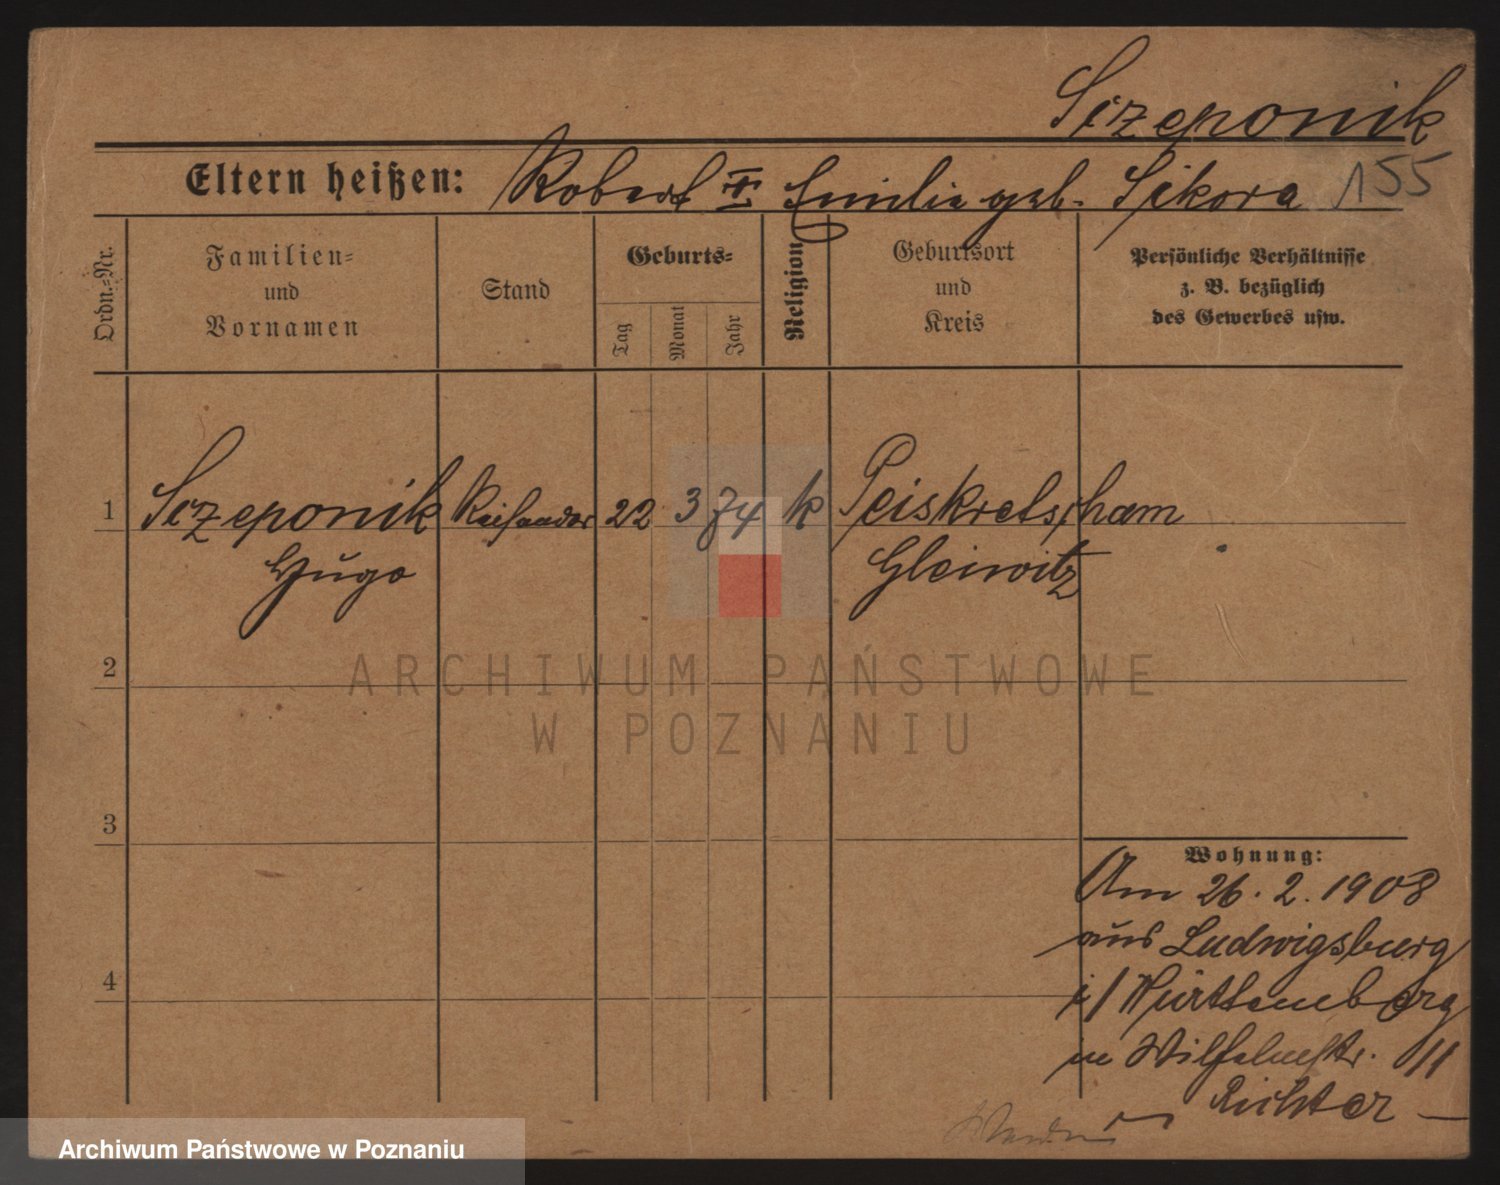 Sczeponik
Eltern heißen: Robert u. Emilie geb. Sikora 155
Ordn.=Nr.
Familien=
und
Vornamen
Stand
Geburts=
Tag
Monat
Jahr
Religion
Geburtsort
und
Kreis
Persönliche Verhältnisse
z. B. bezüglich
des Gewerbes usw.
1 Sczeponik Reisender 22 3 74 k Peiskretscham
Hugo Gleiwitz
2
3
4
Wohnung:
Am 26. 2. 1908
aus Ludwigsburg
i/Württemberg
in Wilhelmstr. 11
Richter
ARCHIWUM PAŃSTWOWE
W POZNANIU
Archiwum Państwowe w Poznaniu